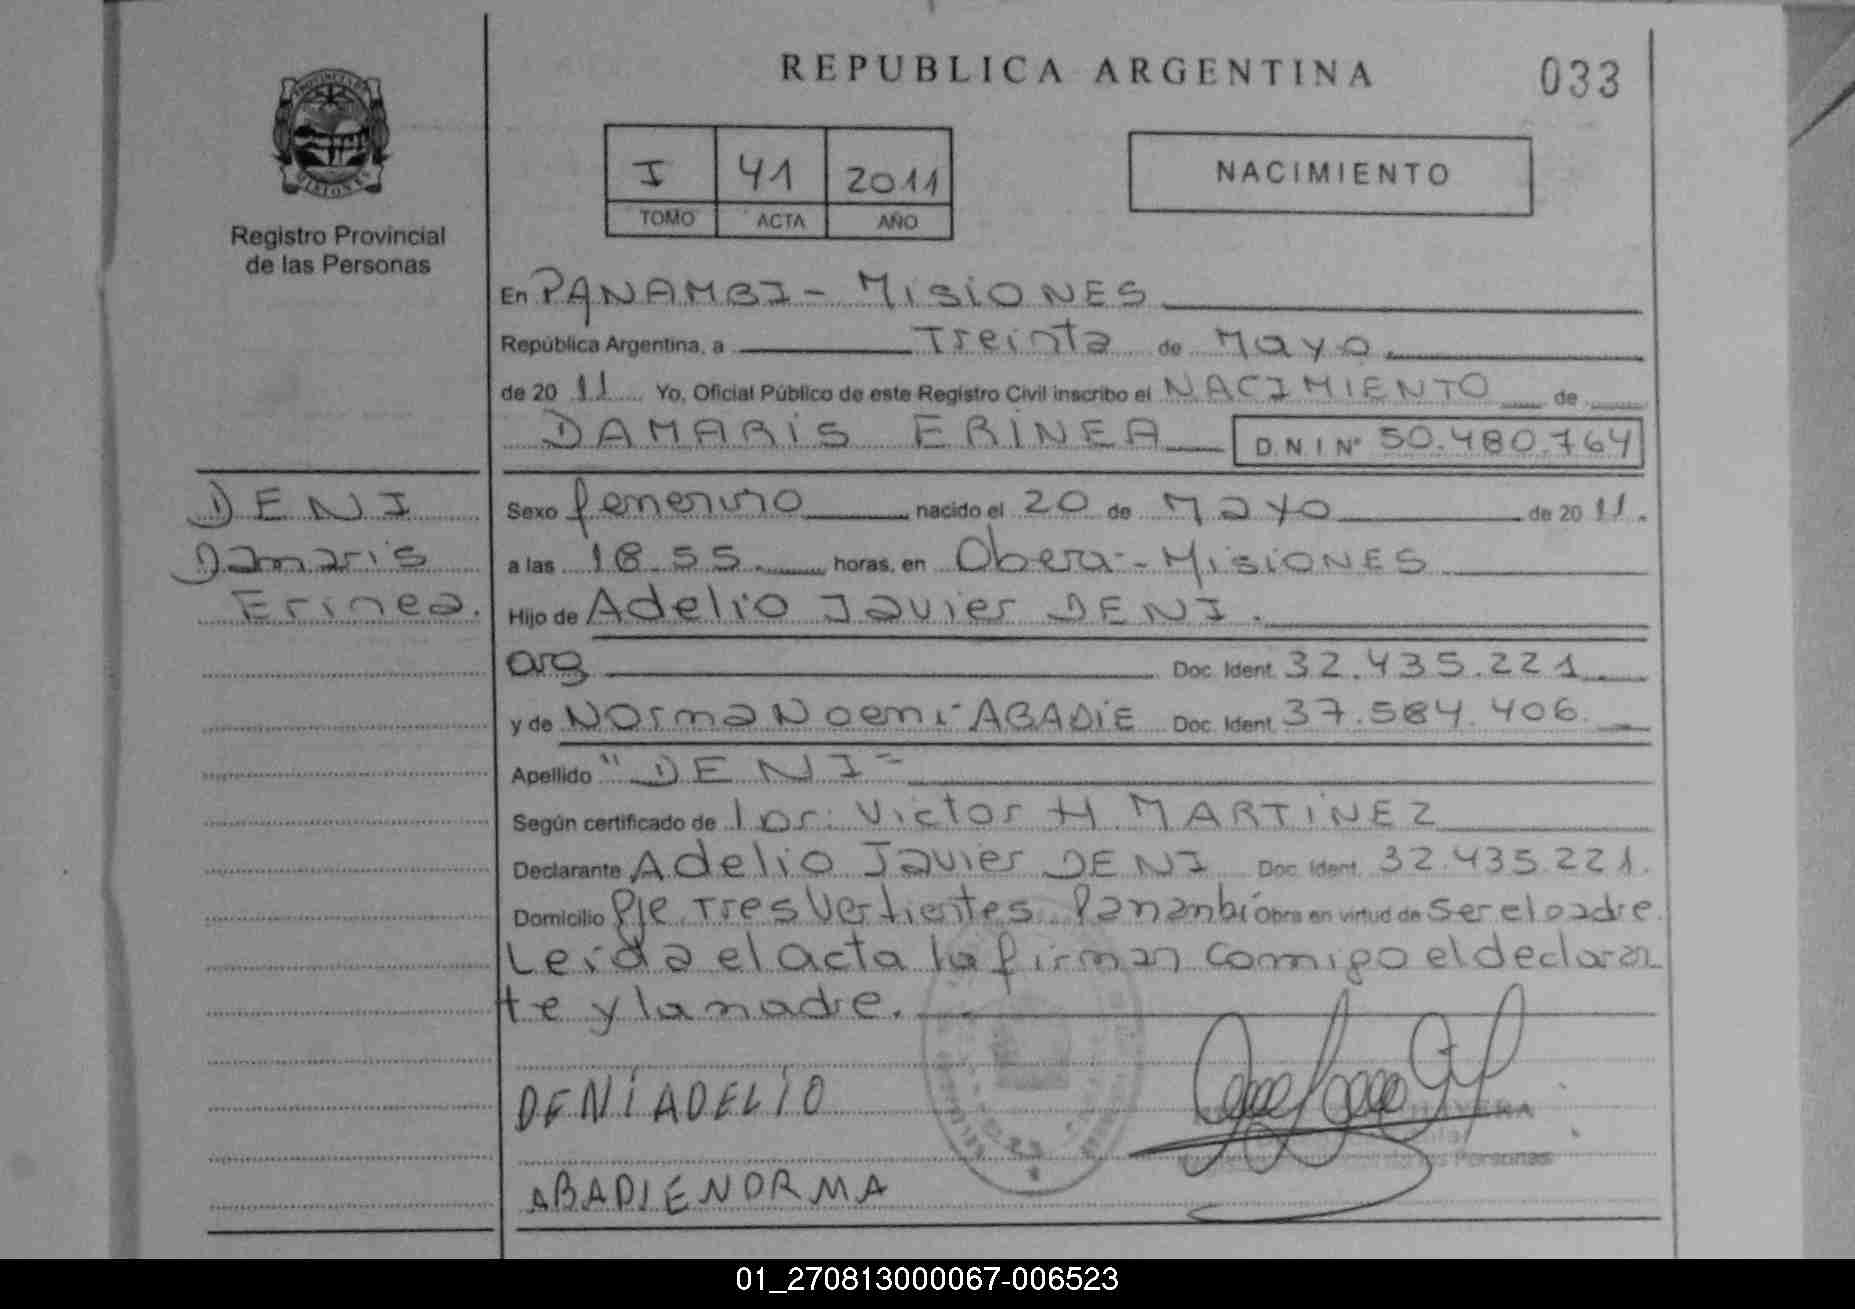 REPUBLICA ARGENTINA
033
I 41 2011
TOMO ACTA AÑO
NACIMIENTO
Registro Provincial
de las Personas
En PANAMBI - MISIONES
República Argentina, a Treinta de Mayo
de 20 11 Yo, Oficial Público de este Registro Civil inscribo el NACIMIENTO de
DAMARIS ERINEA D.N.I Nº 50.480.764
DENI
Damaris
Erinea.
Sexo femenino nacido el 20 de Mayo de 20 11.
a las 18.55 horas, en Obera - MISIONES
Hijo de Adelio Javier DENI.
arg Doc. Ident. 32.435.221
y de Norma Noemi ABADIE Doc. Ident. 37.584.406.
Apellido "DENI"
Según certificado de Dr. Victor H. MARTINEZ
Declarante Adelio Javier DENI Doc. Ident. 32.435.221.
Domicilio Pje Tres Vertientes Panambi Obra en virtud de ser el padre.
Leida el acta la firman conmigo el declaran
te y la madre.
DENI ADELIO
ABADIE NORMA
las Personas
01_270813000067-006523